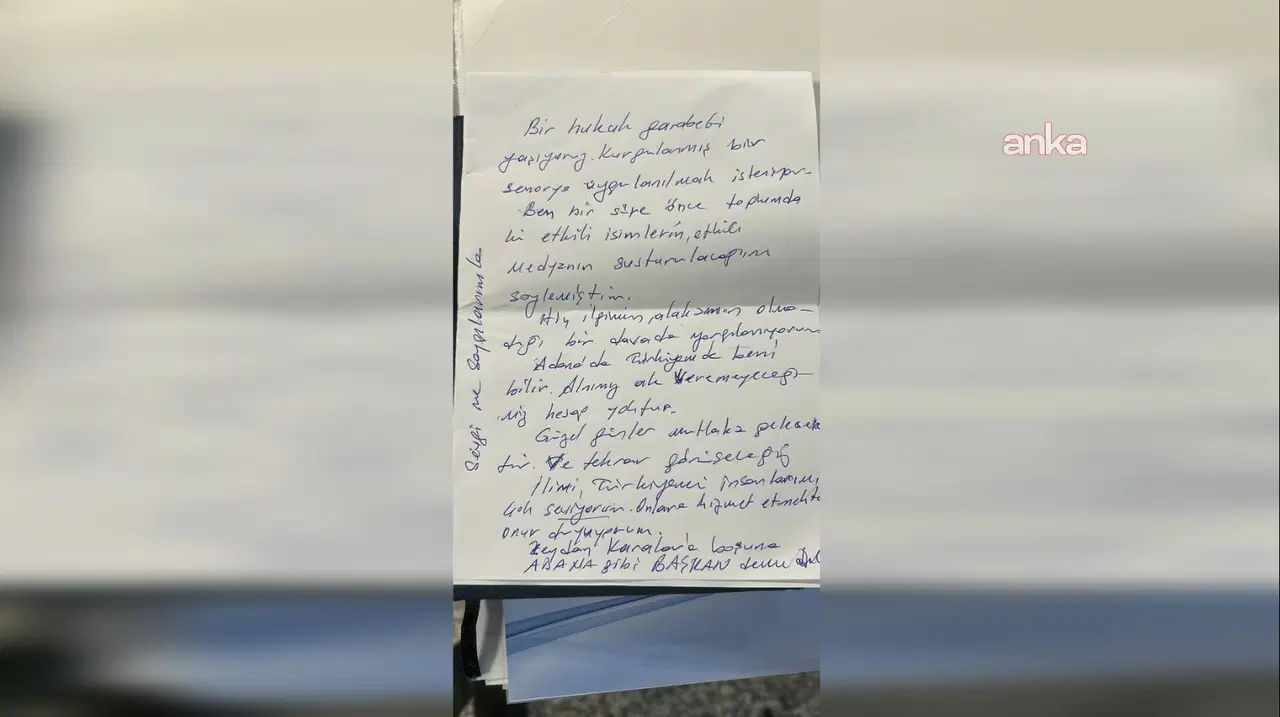 Bir hukuk garabeti
yaşıyoruz. Kurgulanmış bir
senaryo uygulanılmak isteniyor.
Ben bir süre önce toplumda
ki etkili isimlerin, etkili
medyanın susturulacağını
söylemiştim.
Hiç ilgimin, alakamın olma-
dığı bir davada yargılanıyorum
Adana'da Türkiyemde beni
bilir. Alnımız ak Veremeyeceği-
miz hesap yoktur.
Güzel günler mutlaka gelecek
tir. Ve tekrar görüşeceğiz
İlimi, Türkiyemi insanlarımı,
çok seviyorum. Onlara hizmet etmekte
onur duyuyorum.
Zeydan Karalar'a boşuna
ADANA gibi BAŞKAN
Sevgi ve Saygılarımla
anka